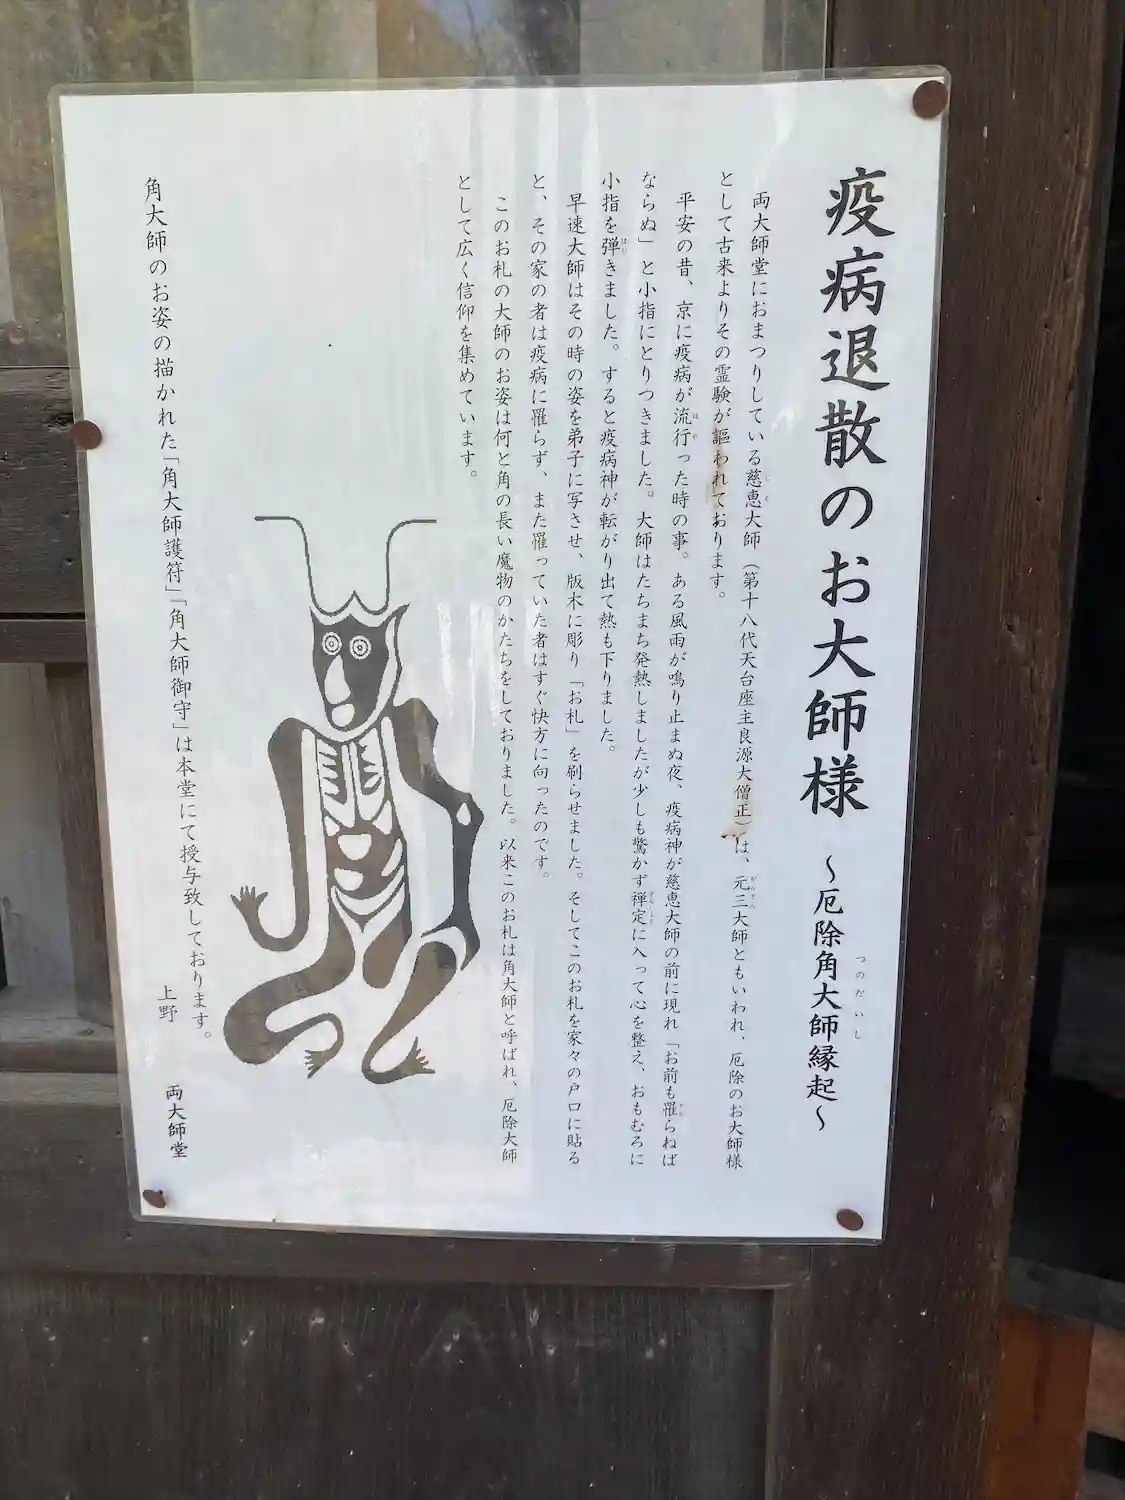 疫病退散のお大師様 ～厄除角大師縁起～
つのだいし
両大師堂におまつりしている慈恵大師（第十八代天台座主良源大僧正）は、元三大師ともいわれ、厄除のお大師様
として古来よりその霊験が謳われております。
平安の昔、京に疫病が流行った時の事。ある風雨が鳴り止まぬ夜、疫病神が慈恵大師の前に現れ「お前も罹らねば
ならぬ」と小指にとりつきました。大師はたちまち発熱しましたが少しも驚かず禅定に入って心を整え、おもむろに
小指を弾きました。すると疫病神が転がり出て熱も下りました。
早速大師はその時の姿を弟子に写させ、版木に彫り「お札」を刷らせました。そしてこのお札を家々の戸口に貼る
と、その家の者は疫病に罹らず、また罹っていた者はすぐ快方に向ったのです。
このお札の大師のお姿は何と角の長い魔物のかたちをしておりました。以来このお札は角大師と呼ばれ、厄除大師
として広く信仰を集めています。
角大師のお姿の描かれた「角大師護符」「角大師御守」は本堂にて授与致しております。
上野 両大師堂